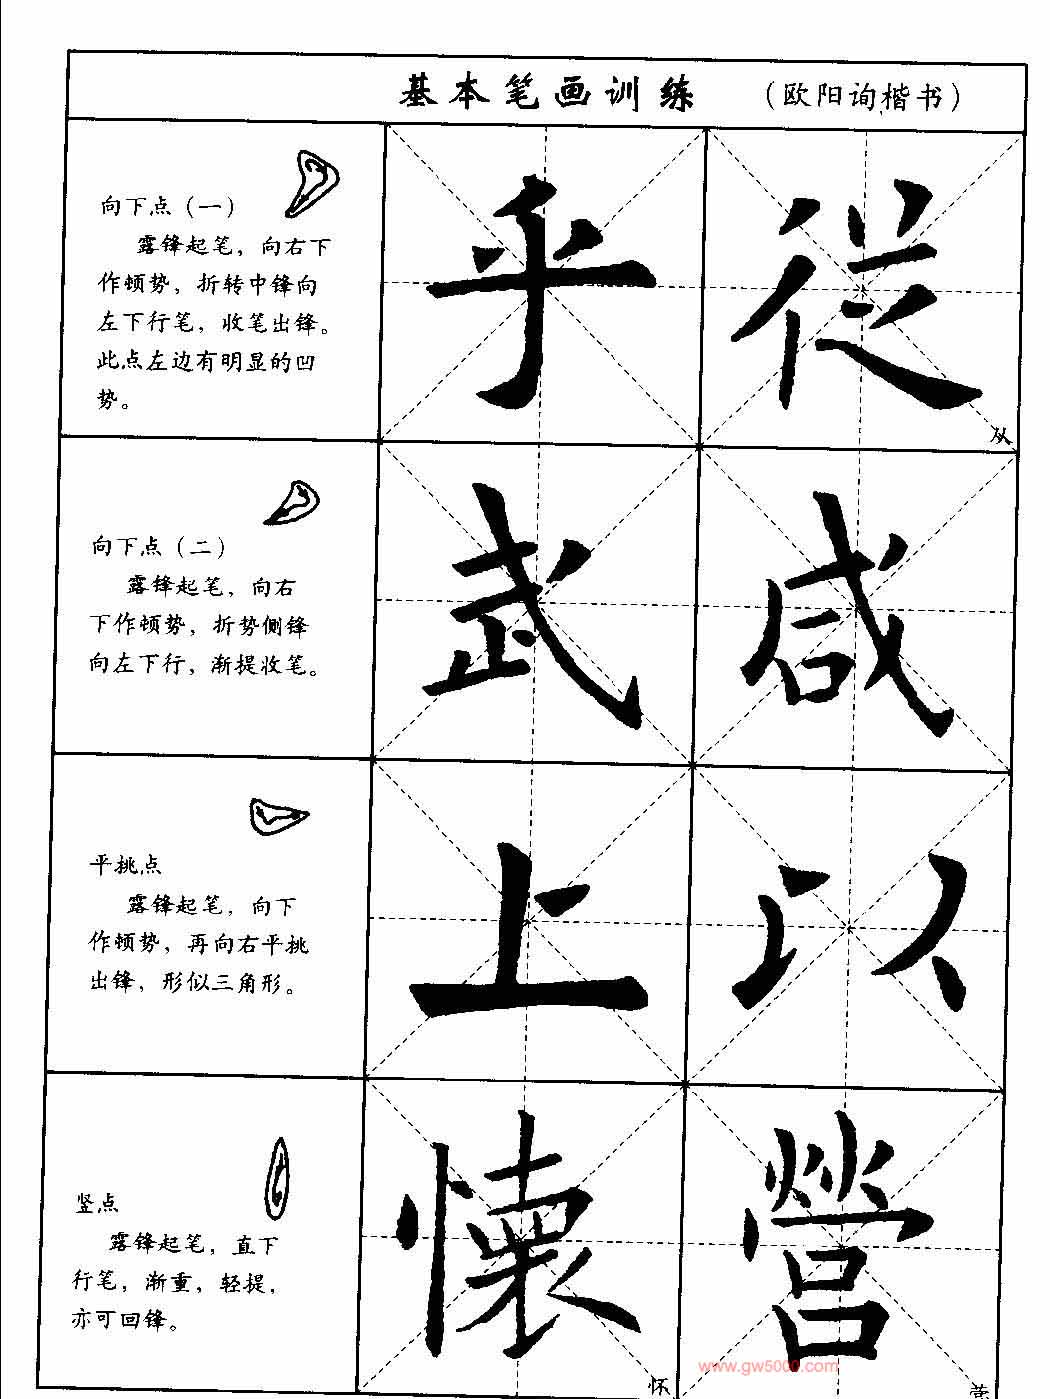 基本笔画训练 （欧阳询楷书）
向下点（一）
露锋起笔，向右下
作顿势，折转中锋向
左下行笔，收笔出锋。
此点左边有明显的凹
势。
乎 從
从
向下点（二）
露锋起笔，向右
下作顿势，折势侧锋
向左下行，渐提收笔。
武 咸
平挑点
露锋起笔，向下
作顿势，再向右平挑
出锋，形似三角形。
上 以
竖点
露锋起笔，直下
行笔，渐重，轻提，
亦可回锋。
懷 營
www.gw5000.com
怀